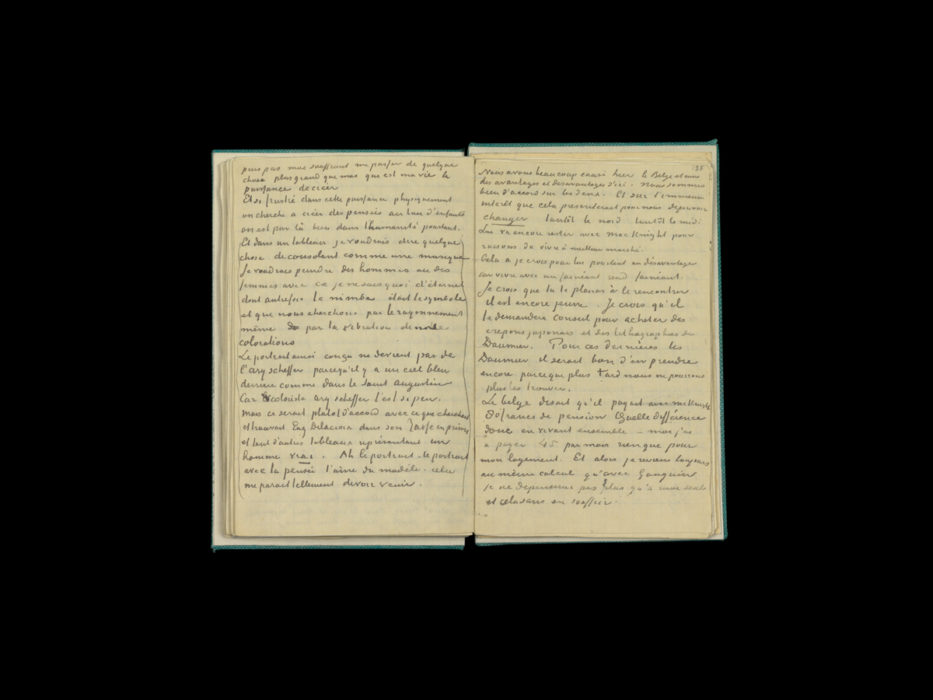 puis pas moi souffrant me passer de quelque
chose plus grand que moi qui est ma vie la
puissance de créer
Et si frustré dans cette puissance physiquement
on cherche à créer des pensées au lieu d'enfants
on est par là bien dans l'humanité pourtant.
Et dans un tableau je voudrais dire quelque
chose de consolant comme une musique
Je voudrais peindre des hommes ou des
femmes avec ce je ne sais quoi d'éternel
dont autrefois le nimbe était le symbole
et que nous cherchons par le rayonnement
même par la vibration de nos
colorations
Le portrait ainsi conçu ne devient pas de
l'ary scheffer parcequ'il y a un ciel bleu
derrière comme dans le saint augustin
Car coloriste ary scheffer l'est si peu.
mais ce serait plutot d'accord avec ce que cherchait
et trouvait Eug Delacroix dans son Tasse en prison
et tant d'autres tableaux représentant un
homme vrai. Ah le portrait – le portrait
avec la pensée l'ame du modèle – cela
me parait tellement devoir venir.
135
Nous avons beaucoup causé hier le Belge et moi
des avantages et desavantages d'ici. Nous sommes
bien d'accord sur les deux. Et sur l'immense
interêt que cela presenterait pour nous de pouvoir
changer tantôt le nord tantôt le midi.
Lui va encore rester avec MacKnight pour
raisons de vivre à meilleur marché.
Cela a je crois pour lui pourtant un désavantage
car vivre avec un fainéant rend fainéant.
Je crois que tu te plairas à le rencontrer
il est encore jeune. Je crois qu'il
te demandera conseil pour acheter des
crepons japonais et des lithographies de
Daumier. Pour ces dernières, les
Daumier il serait bon d'en prendre
encore parceque plus tard nous ne pourrons
plus en trouver.
Le belge disait qu'il payait avec McKnight
80 francs de pension Quelle différence
donc en vivant ensemble – moi j'ai
à payer 45 par mois rien que pour
mon logement. Et alors je reviens toujours
au même calcul qu'avec Gauguin
je ne dépenserai pas plus qu'à moi seul
et cela sans en souffrir.